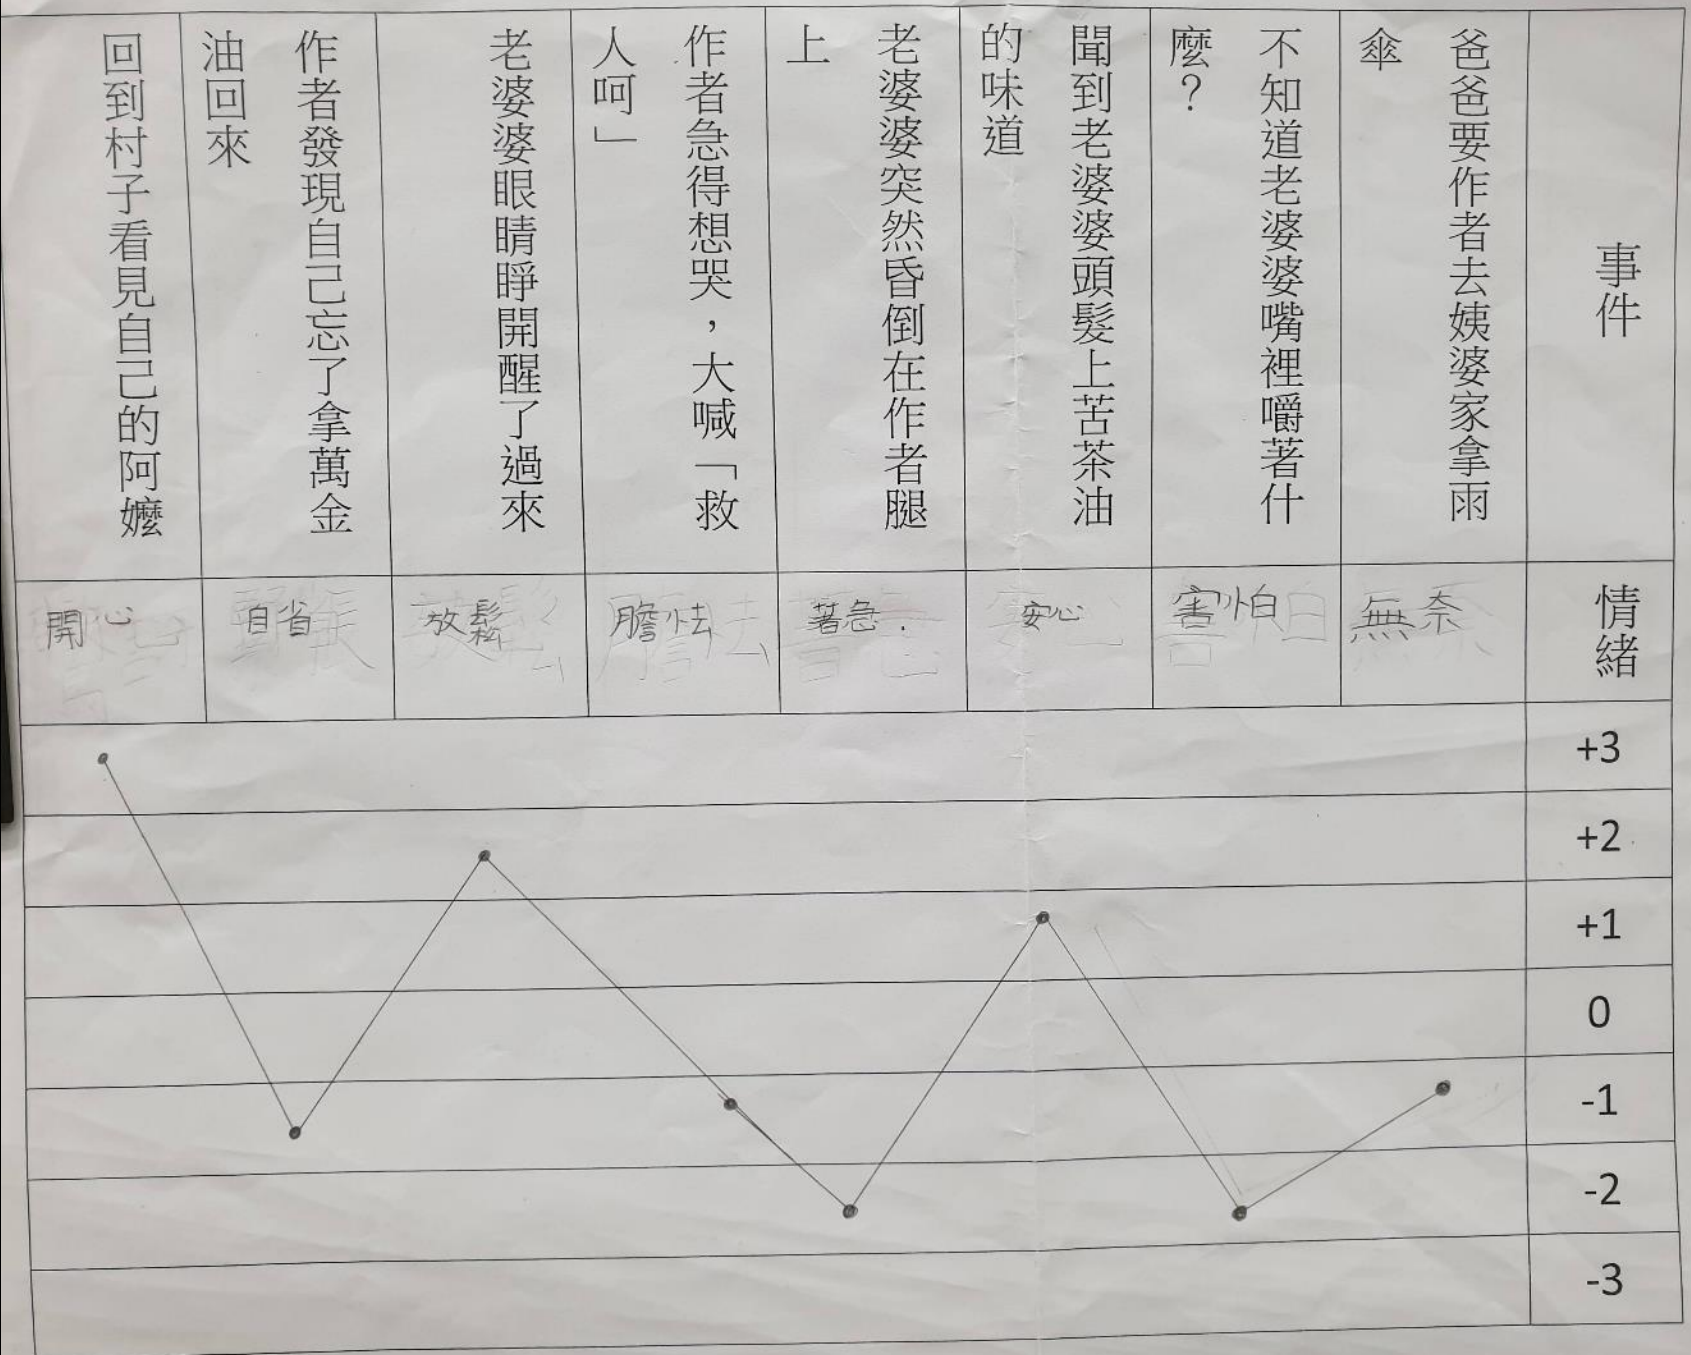 事件
爸爸要作者去姨婆家拿雨
傘
不知道老婆婆嘴裡嚼著什
麼？
聞到老婆婆頭髮上苦茶油
的味道
老婆婆突然昏倒在作者腿
上
作者急得想哭，大喊「救
人呵」
老婆婆眼睛睜開醒了過來
作者發現自己忘了拿萬金
油回來
回到村子看見自己的阿嬤
情緒
無奈
害怕
安心
著急.
膽怯
放鬆
自省
開心
+3
+2
+1
0
-1
-2
-3